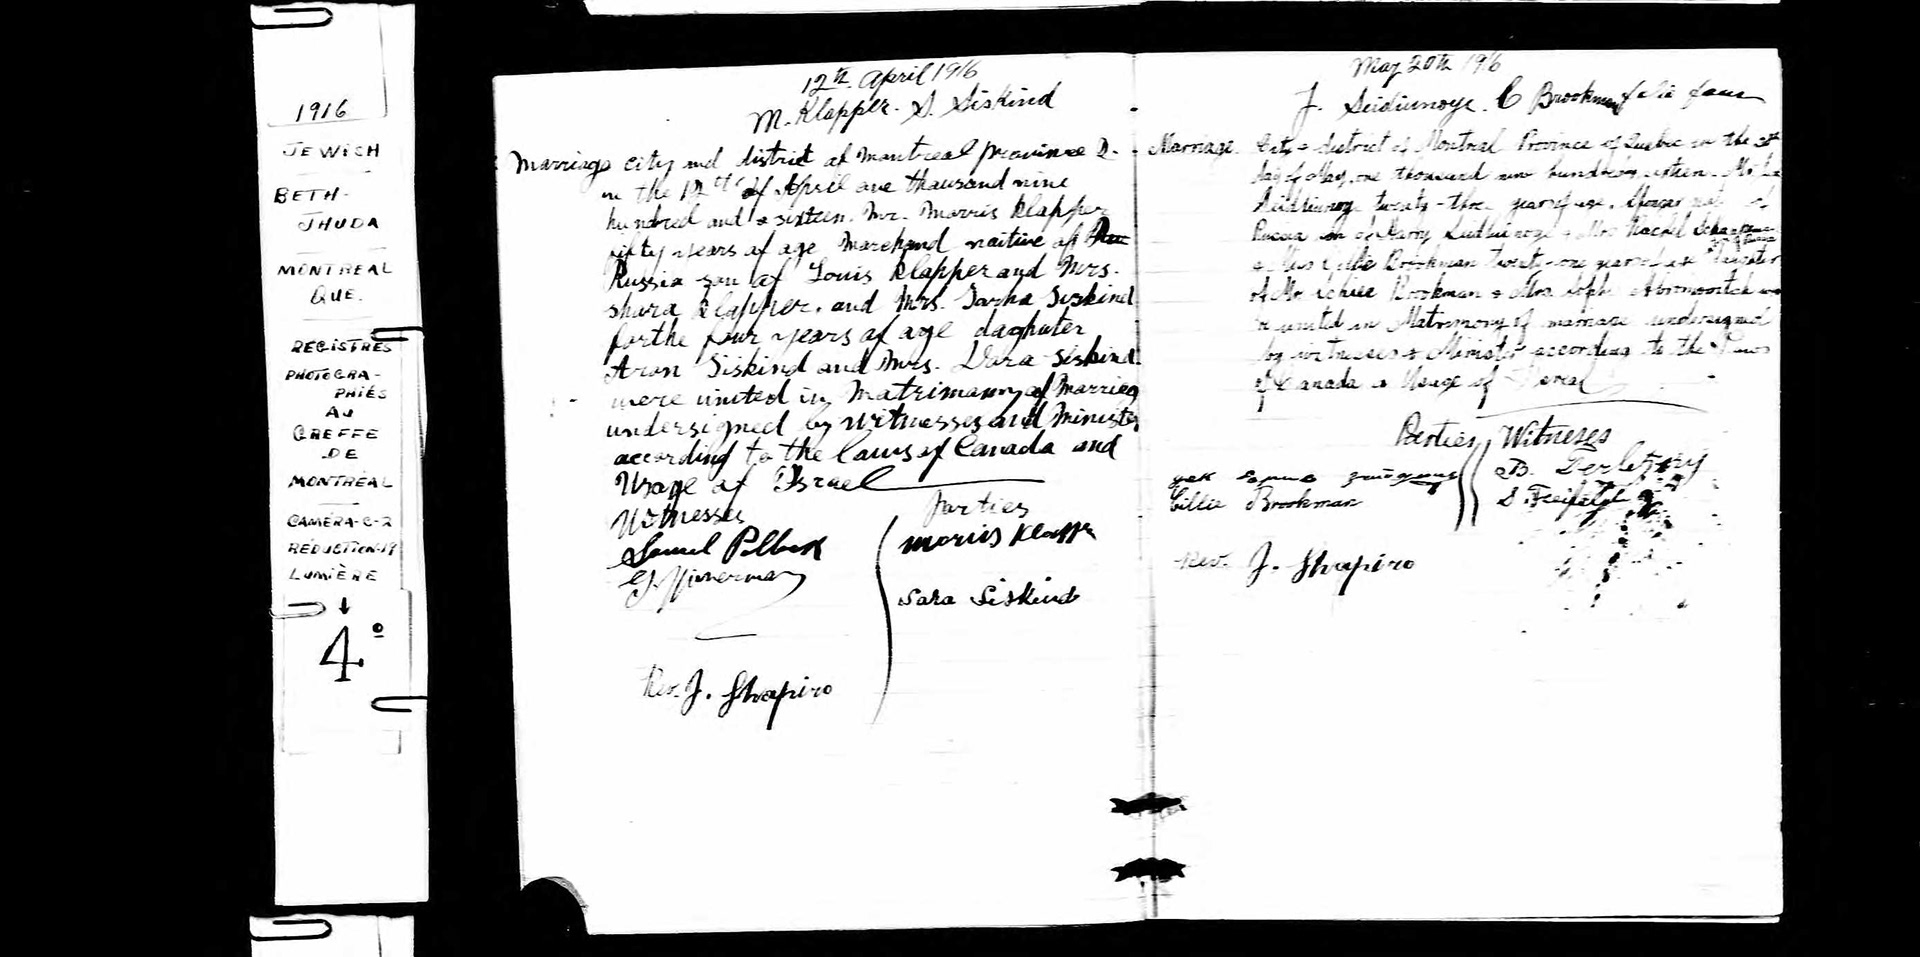 1916
JEWISH
BETH-
JHUDA
MONTREAL
QUE.
REGISTRES
PHOTOGRA-
PHIÉS
AU
GREFFE
DE
MONTRÉAL
CAMÉRA-C-2
RÉDUCTION-19
LUMIÈRE
4º
12th April 1916
M. Klapper. S. Siskind
Marriage city and district of Montreal province Q.
in the 12th of April one thousand nine
hundred and sixteen. Mr. Morris Klapper
fifty years of age Marchand naitive of
Russia son of Louis Klapper and Mrs.
shara Klapper. and Mrs. Sarha Siskind
forthe four years of age daghuter
Aron Siskind and Mrs. Dora Siskind
were united in Matrimony of Marrieg
undersigned by witnesses and Minister
according to the laws of Canada and
Usage of Israel
Witnesses
Parties
Samuel Pollack
Morris Klapper
Sara Siskind
Rev. J. Shapiro
May 20th 1916
J. C Brookman
Marriage. City & district of Montreal Province of Quebec in the 20th
day of May, one thousand nine hundred sixteen. Mr
twenty-three years of age.
Russia son of Harry & Mrs Rachel
& Miss Brookman twenty-one years of age daughter
of Mr Brookman & Mrs Abromovitch
united in Matrimony of marriage undersigned
by witnesses & Minister according to the Laws
of Canada & Usage of Isreal
Parties Witneses
Cillie Brookman
Rev. J. Shapiro